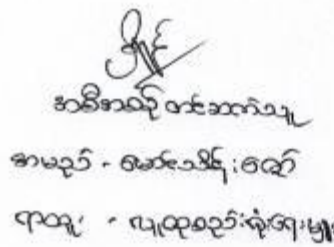 အစီအစဉ် တင်ဆက်သူ
အမည် - မောင်သိန်းဇော်
ရာထူး - လူထုစည်းရုံးရေးမှူး